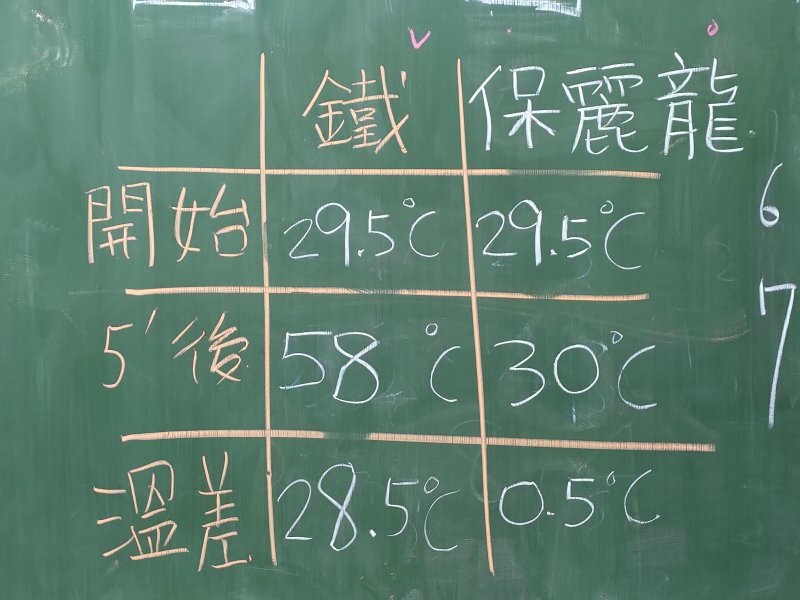 鐵 保麗龍
開始 29.5°C 29.5°C
5'後 58°C 30°C
溫差 28.5°C 0.5°C
6
7